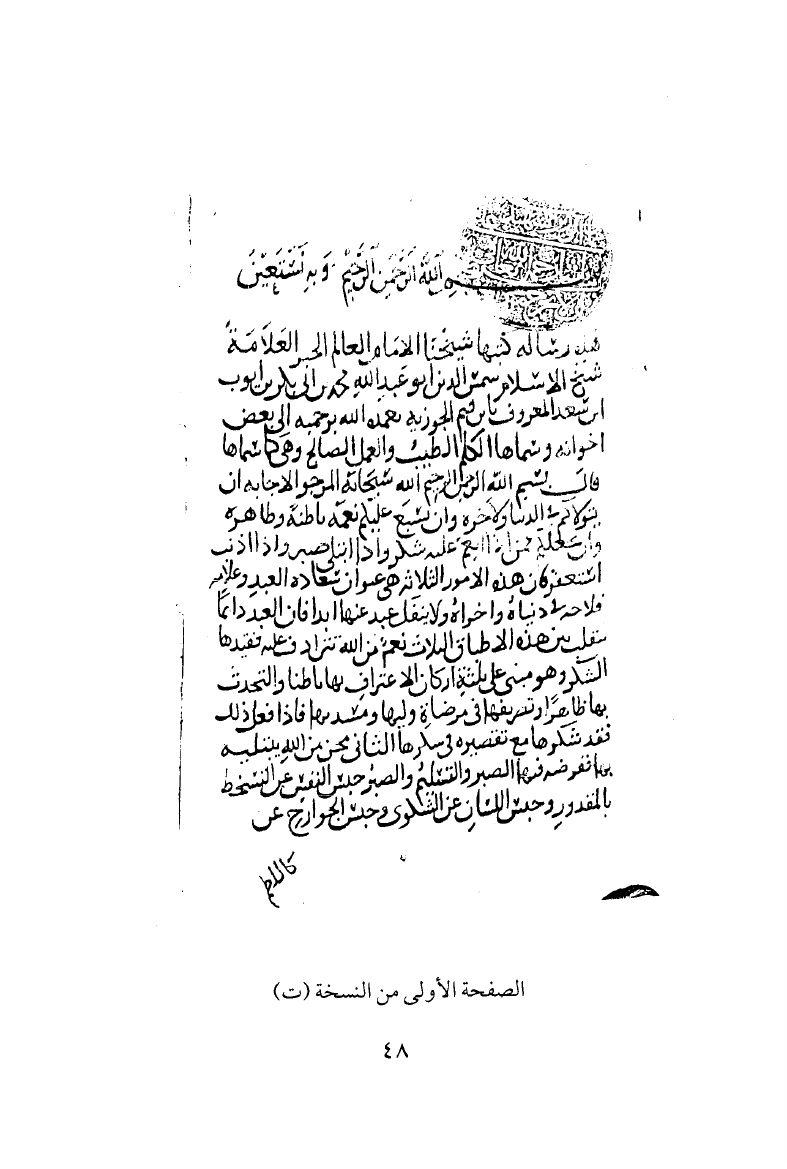 بسم الله الرحمن الرحيم وبه نستعين
هذه رساله كتبها شيخنا الامام العالم الحبر العلامة
شيخ الاسلام شمس الدين ابو عبد الله محمد بن ابى بكر بن ايوب
ابن سعد المعروف بابن قيم الجوزيه تغمده الله برحمته الى بعض
اخوانه وسماها الكلم الطيب والعمل الصالح وهى كما سماها
قال بسم الله الرحمن الرحيم الله سبحانه المرجو الاجابه ان
يتولاكم فى الدنيا والاخره وان يسبغ عليكم نعمه باطنة وظاهرة
وان يجعلكم ممن اذا انعم عليه شكر واذا ابتلى صبر واذا اذنب
استغفر فان هذه الامور الثلاثه هى عنوان سعاده العبد وعلامه
فلاحه فى دنياه واخراه ولا ينفك عبد عنها ابدا فان العبد دائما
متقلب بين هذه الاطباق الثلاث نعم من الله تترادف عليه فقيدها
الشكر وهو مبنى على ثلثة اركان الاعتراف بها باطنا والتحدث
بها ظاهرا وتصريفها فى مرضاة وليها ومسديها فاذا فعل ذلك
فقد شكرها مع تقصيره فى شكرها الثانى محن من الله يبتليه
بها ففرضه فيها الصبر والتسليم والصبر حبس النفس عن التسخط
بالمقدور وحبس اللسان عن الشكوى وحبس الجوارح عن
كاللطم
الصفحة الأولى من النسخة (ت)
٤٨